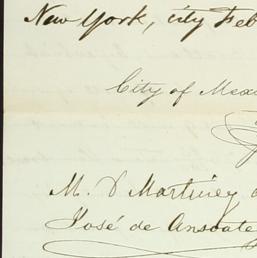 New York, city Feb
City of Mexi
M. D Martinez a
José de Ansoate